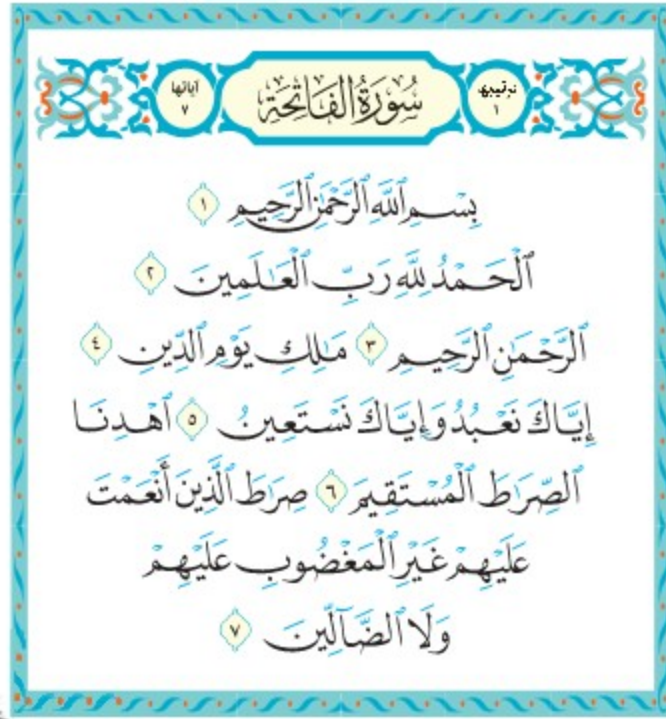 ترتيبها
١
سُورَةُ الفَاتِحَةِ
آياتها
٧
بِسْمِ ٱللَّهِ ٱلرَّحْمَٰنِ ٱلرَّحِيمِ ١
ٱلْحَمْدُ لِلَّهِ رَبِّ ٱلْعَٰلَمِينَ ٢
ٱلرَّحْمَٰنِ ٱلرَّحِيمِ ٣ مَٰلِكِ يَوْمِ ٱلدِّينِ ٤
إِيَّاكَ نَعْبُدُ وَإِيَّاكَ نَسْتَعِينُ ٥ ٱهْدِنَا
ٱلصِّرَٰطَ ٱلْمُسْتَقِيمَ ٦ صِرَٰطَ ٱلَّذِينَ أَنْعَمْتَ
عَلَيْهِمْ غَيْرِ ٱلْمَغْضُوبِ عَلَيْهِمْ
وَلَا ٱلضَّآلِّينَ ٧